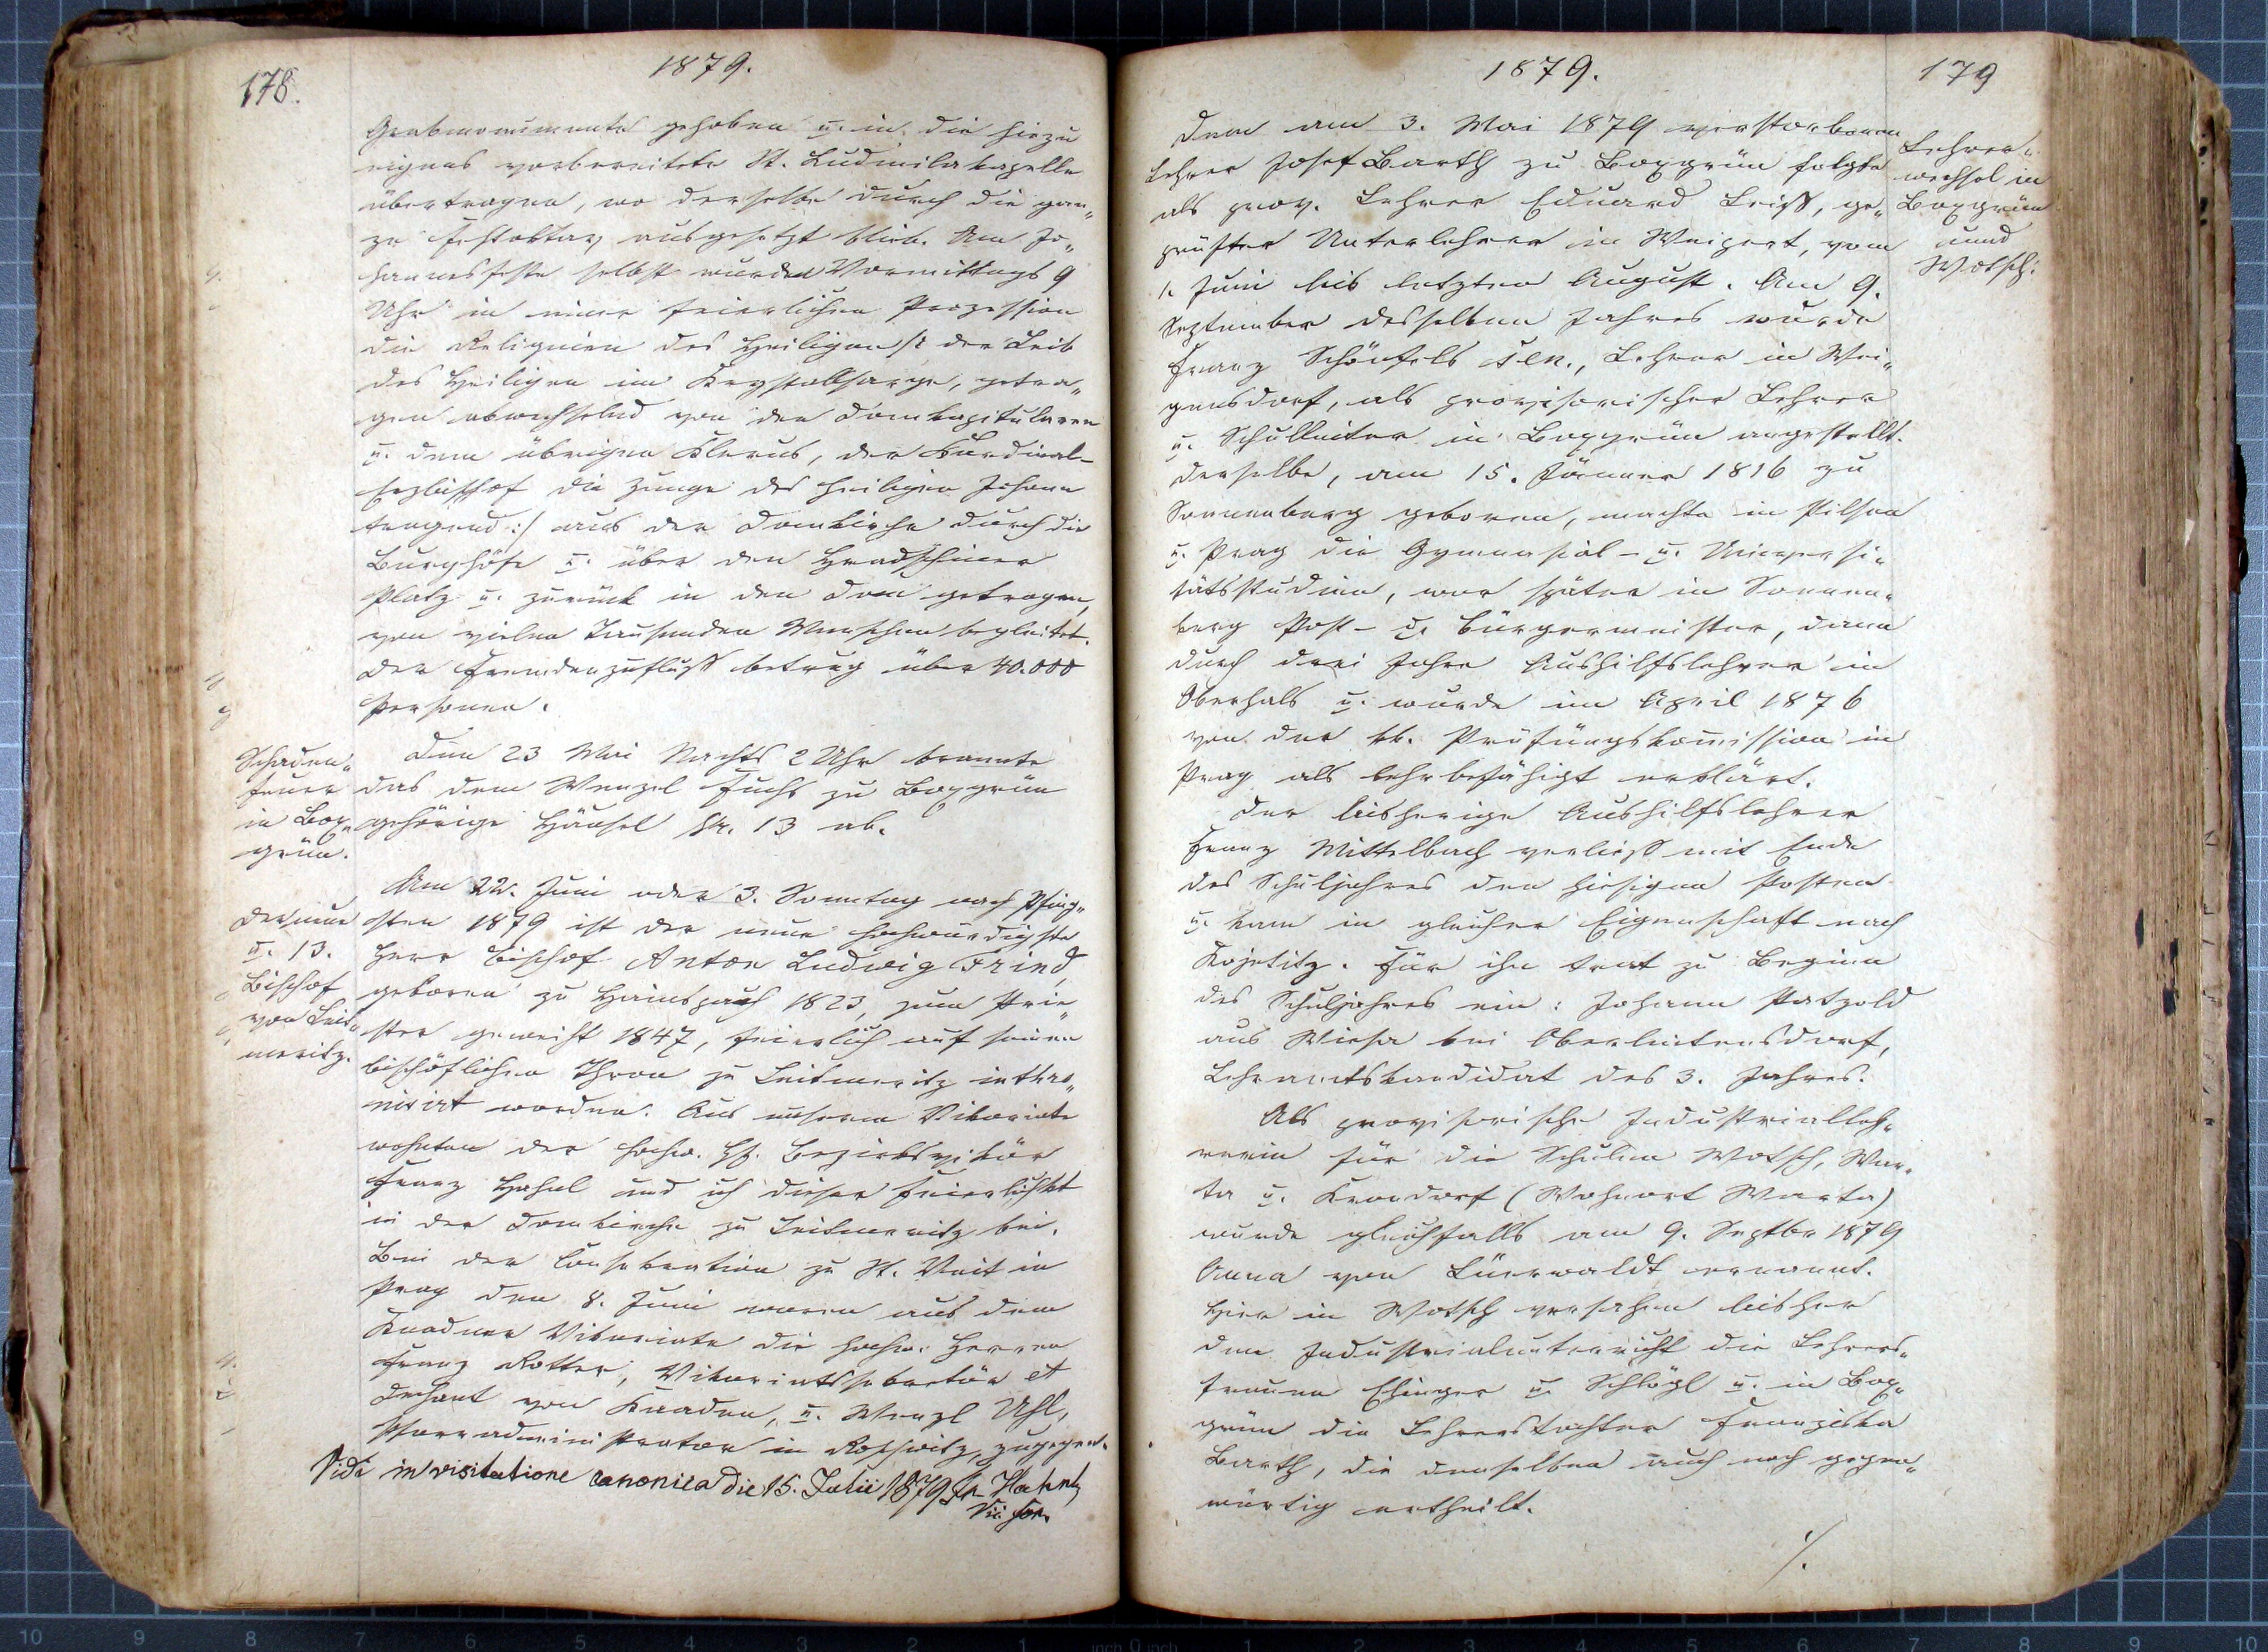 178.
1879.
Grabmonumente gehoben u. in die hiezu
eigens vorbereitete St. Ludmilakapelle
übertragen, wo derselbe durch die gan„
ze Festoktav ausgesetzt blieb. Am Jo„
hannesfeste selbst wurden Vormittags 9
Uhr in einer feierlichen Prozession
die Reliquien des Heiligen /: der Leib
des Heiligen im Krystallsarge, getra„
gen abwechselnd von den Domkapitularen
u. dem übrigen Klerus, der Kardinal-
Erzbischof die Zunge des heiligen Johann
tragend :/ aus der Domkirche durch die
Burghöfe u. über den Hradschiner
Platz u. zurück in den Dom getragen,
von vielen Tausenden Menschen begleitet.
Der Fremdenzufluß betrug über 40.000
Personen.
Schaden„
feuer
in Box„
grün.
Den 23 Mai Nachts 2 Uhr brannte
das dem Wenzel Fuchs zu Boxgrün
gehörige Häusel N. 13 ab.
Der neue
u. 13.
Bischof
von Leit„
meritz.
Am 22. Juni oder 3. Sonntag nach Pfing„
sten 1879 ist der neue hochwürdigste
Herr Bischof Anton Ludwig Frind,
geboren zu Hainspach 1823, zum Prie„
ster geweiht 1847, feierlich auf seinen
bischöflichen Thron zu Leitmeritz inthro„
nisirt worden. Aus unserem Vikariate
wohnten der hochw. H. Bezirksvikär
Franz Hahnl und ich dieser Feierlichkt
in der Domkirche zu Leitmeritz bei.
Bei der Consekration zu St. Veit in
Prag den 8. Juni waren aus dem
Kaadner Vikariate die hochw. Herren
Franz Rotter, Vikariatssekretär et
Dechant von Kaaden, u. Wenzl Uhl,
Pfarradministrator in Roschwitz, zugegen.
Vidi in visitatione canonica die 15. Julii 1879 Fr. Hahnl
Vic. for.
1879.
179
Lehrer„
wechsel in
Boxgrün
und
Wotsch.
Dem am 3. Mai 1879 verstorbenen
Lehrer Josef Barth zu Boxgrün folgte
als prov. Lehrer Eduard Leiß, ge„
prüfter Unterlehrer in Weipert, vom
1. Juni bis letzten August. Am 9.
September desselben Jahres wurde
Franz Schönfels sen., Lehrer in Wei„
gensdorf, als provisorischer Lehrer
u. Schulleiter in Boxgrün angestellt.
Derselbe, am 15. Jänner 1816 zu
Sonnenberg geboren, machte in Pilsen
u. Prag die Gymnasial- u. Universi„
tätsstudien, war später in Sonnen„
berg Post- u. Bürgermeister, dann
durch drei Jahre Aushilfslehrer in
Oberhals u. wurde im April 1876
von der kk. Prüfungskommission in
Prag als lehrbefähigt erklärt.
Der bisherige Aushilfslehrer
Franz Mittelbach verließ mit Ende
des Schuljahres den hiesigen Posten
u. kam in gleicher Eigenschaft nach
Kojetitz. Für ihn trat zu Beginn
des Schuljahres ein: Johann Patzold
aus Wiesa bei Oberleutensdorf,
Lehramtskandidat des 3. Jahres.
Als provisorische Industrialleh„
rerin für die Schulen Wotsch, War„
ta u. Krondorf (Wohnort Warta)
wurde gleichfalls am 9. Septbr 1879
Anna von Lüerwaldt ernannt.
Hier in Wotsch versahen bisher
den Industrialunterricht die Lehrers„
frauen Ehinger u. Schlögl u. in Box„
grün die Lehrerstochter Franziska
Barth, die denselben auch noch gegen„
wärtig ertheilt.
./.